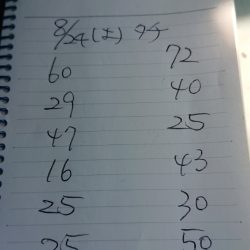 8/24(土)
60 72
29 40
47 25
16 43
25 30
25 50